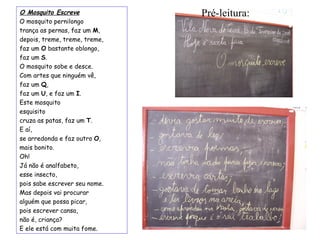 O Mosquito Escreve
O mosquito pernilongo
trança as pernas, faz um M,
depois, treme, treme, treme,
faz um O bastante oblongo,
faz um S.
O mosquito sobe e desce.
Com artes que ninguém vê,
faz um Q,
faz um U, e faz um I.
Este mosquito
esquisito
cruza as patas, faz um T.
E aí,
se arredonda e faz outro O,
mais bonito.
Oh!
Já não é analfabeto,
esse insecto,
pois sabe escrever seu nome.
Mas depois vai procurar
alguém que possa picar,
pois escrever cansa,
não é, criança?
E ele está com muita fome.
Pré-leitura:
Vila Nova do
de Fevereiro de 2008
Hoje é sexta feira
O mosquito escreve
gostar muito de escrever
- gostava de ler;
- escrevia poemas;
- não tinha
- escrevia cartas;
- gostava de tomar banho no lago
e ler livros na areia;
- escreve porque é o seu trabalho;